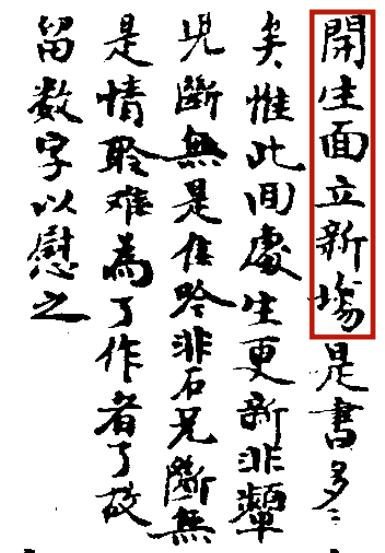 開生面立新塲是書多〻
矣惟此囬處生更新非顰
児斷無是佳吟非石兄斷無
是情聆难為了作者了故
留数字以慰之